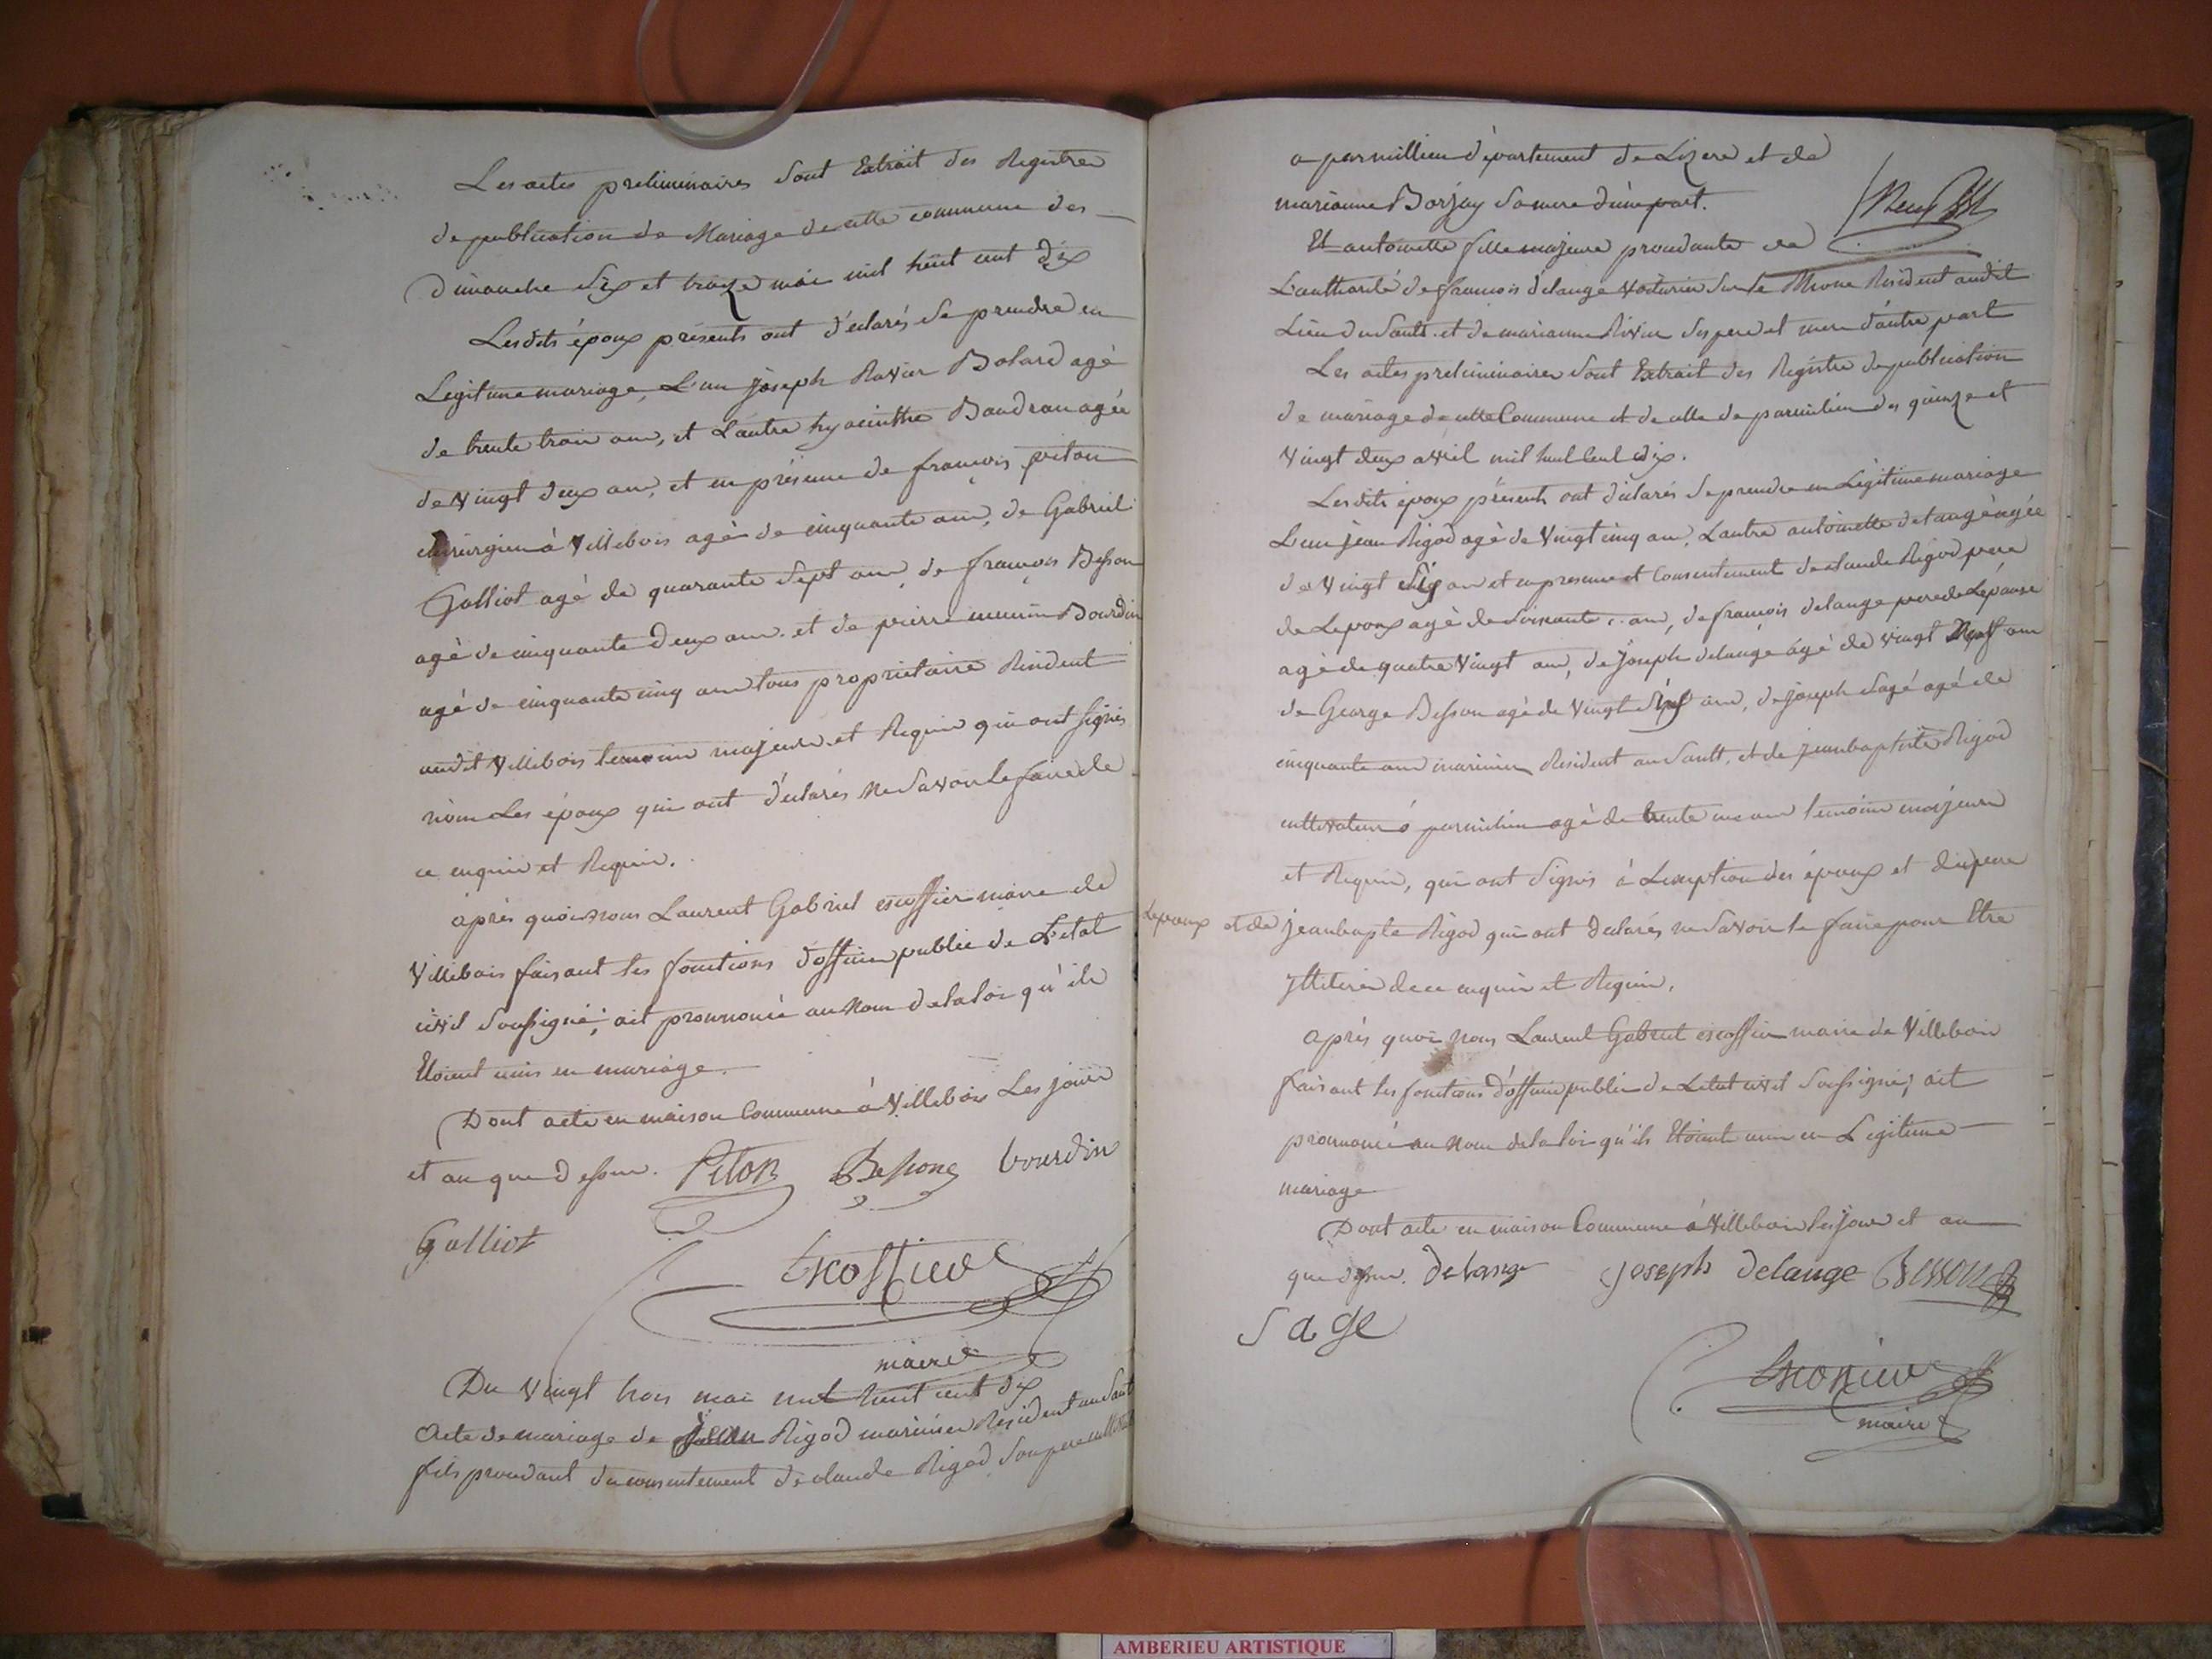 Les actes preliminaires sont Extrait des Registres
de publication de Mariage de cette commune des
dimanche six et treize mai mil huit cent dix
Lesdits époux présents ont déclarés se prendre en
Legitime mariage, L'un joseph Ravier Bolard agé
de trente trois ans, et L'autre hyacinthe Baudran agée
de vingt deux ans, et en présence de françois piton
chirurgien à Villebois agé de cinquante ans, de Gabriel
Galliot agé de quarante sept ans, de françois Besson
agé de cinquante deux ans. et de pierre Bourdin
agé de cinquante cinq ans tous proprietaire Résident
audit Villebois temoin majeurs et Requis qui ont signés
non Les époux qui ont déclarés ne Savoir le faire de
ce enquis et Requis.
après quoi nous Laurent Gabriel escoffier maire de
Villebois faisant les fonctions d'officier public de L'etat
civil Soussigné; ait prononcé au Nom de la loi qu'ils
Etoient unis en mariage.
Dont acte en maison Commune à Villebois Les jour
et an que dessus. Piton Bessong bourdin
Galliot
Escoffier
maire
Du vingt trois mai mil huit cent dix
Acte de mariage de jean Rigod marinier Résident au Sault
fils procedant du consentement de claude Rigod son pere
a parmillieu département de Lizere et de
marianne Borjay sa mere d'une part.
Et antoinette fille majeure procedante de
L'authorité de francois delange voiturier sur le Rhone Résident audit
Lieu du Sault. et de marianne ses pere et mere d'autre part
Les actes preliminaires sont Extrait des Registre de publication
de mariage de cette Commune et de celle de parmilieu des quinze et
vingt deux avril mil huit cent dix.
Lesdits époux présents ont déclarés se prendre en Légitime mariage
L'un jean Rigod agé de vingt cinq ans, L'autre antoinette delange agée
de vingt six ans et en presence et Consentement de claude Rigod pere
de Lepoux agé de soixante ans, de françois delange pere de Lépouse
agé de quatre vingt ans, de joseph delange agé de vingt neuf ans
de George Besson agé de vingt ans, de joseph Sage agé de
cinquante ans marinier Résident au Sault, et de jean baptiste Rigod
cultivateur à parmilieu agé de trente ans temoins majeurs
et Requis, qui ont signés à L'exeption des époux et du pere
Lepoux et de jean bapte Rigod qui ont declarés ne Savoir le faire pour Etre
yllitérés de ce enquis et Requis.
après quoi nous Laurent Gabriel escoffier maire de Villebois
faisant les fonctions d'officier public de L'etat civil Soussigné; ait
prononcé au Nom de la loi qu'ils Etoient unis en Legitime
mariage
Dont acte en maison Commune à Villebois les jour et an
que dessus. delange joseph delange Besson
Sage
Escoffier
maire
AMBERIEU ARTISTIQUE